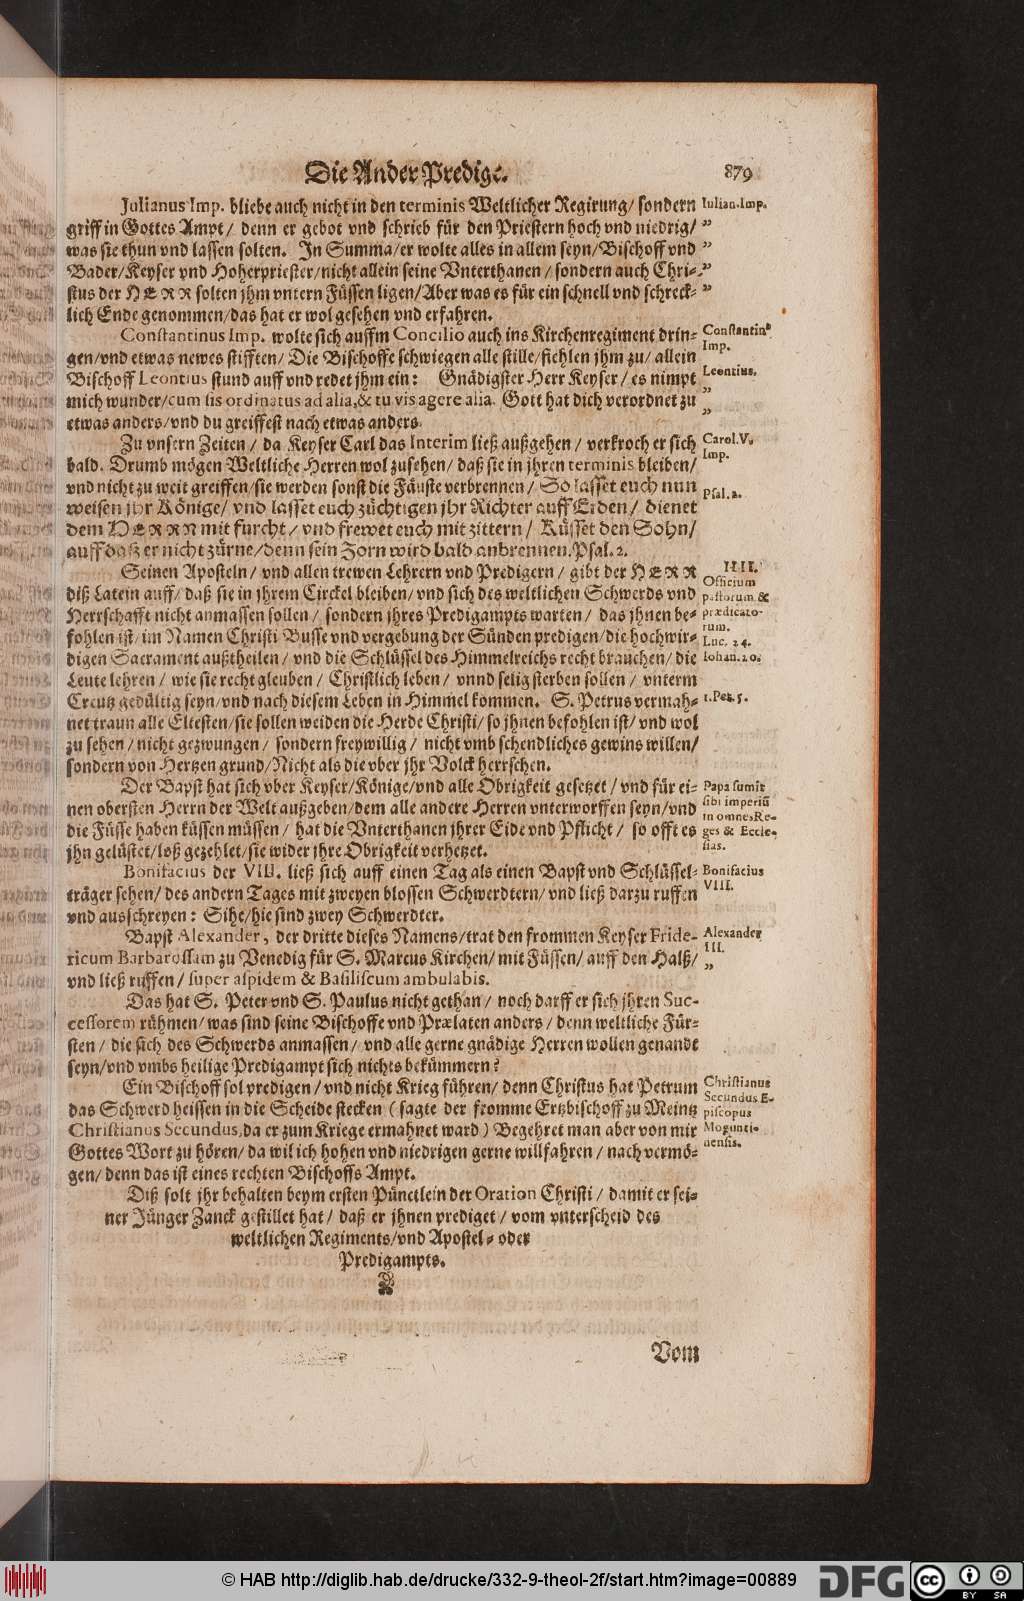 Die Ander Predigt.
879
Julianus Imp. bliebe auch nicht in den terminis Weltlicher Regirung/ sondern
griff in Gottes Ampt/ denn er gebot vnd schrieb für den Priestern hoch vnd niedrig/
was sie thun vnd lassen solten. In Summa/er wolte alles in allem seyn/Bischoff vnd
Bader/Keyser vnd Hoherpriester/nicht allein seine Vnterthanen / sondern auch Chri-
stus der HERR solten jhm vntern Füssen ligen/Aber was es für ein schnell vnd schreck-
lich Ende genommen/das hat er wol gesehen vnd erfahren.
Constantinus Imp. wolte sich auffm Concilio auch ins Kirchenregiment drin-
gen/vnd etwas newes stifften/ Die Bischoffe schwiegen alle stille/fiehlen jhm zu/ allein
Bischoff Leontius stund auff vnd redet jhm ein: Gnädigster Herr Keyser / es nimpt
mich wunder/cum sis ordinatus ad alia, & tu vis agere alia. Gott hat dich verordnet zu
etwas anders/vnd du greiffest nach etwas anders.
Zu vnsern Zeiten / da Keyser Carl das Interim ließ außgehen / verkroch er sich
bald. Drumb mögen Weltliche Herren wol zusehen/ daß sie in jhren terminis bleiben/
vnd nicht zu weit greiffen/sie werden sonst die Fäuste verbrennen / So lasset euch nun
weisen jhr Könige/ vnd lasset euch züchtigen jhr Richter auff Erden/ dienet
dem HERRN mit furcht / vnd frewet euch mit zittern / Küsset den Sohn/
auff daß er nicht zürne/denn sein Zorn wird bald anbrennen. Psal. 2.
Seinen Aposteln/ vnd allen trewen Lehrern vnd Predigern / gibt der HERR
diß Latein auff/ daß sie in jhrem Circkel bleiben/ vnd sich des weltlichen Schwerds vnd
Herrschafft nicht anmassen sollen / sondern jhres Predigampts warten / das jhnen be-
fohlen ist/ im Namen Christi Busse vnd vergebung der Sünden predigen/die hochwir-
digen Sacrament außtheilen / vnd die Schlüssel des Himmelreichs recht brauchen/ die
Leute lehren / wie sie recht gleuben / Christlich leben / vnnd selig sterben sollen / vnterm
Creutz gedültig seyn/vnd nach diesem Leben in Himmel kommen. S. Petrus vermah-
net traun alle Eltesten/sie sollen weiden die Herde Christi/ so jhnen befohlen ist/ vnd wol
zu sehen / nicht gezwungen / sondern freywillig / nicht vmb schendliches gewins willen/
sondern von Hertzen grund/Nicht als die vber jhr Volck herrschen.
Der Bapst hat sich vber Keyser/Könige/vnd alle Obrigkeit gesetzet / vnd für ei-
nen obersten Herrn der Welt außgeben/dem alle andere Herren vnterworffen seyn/vnd
die Füsse haben küssen müssen / hat die Vnterthanen jhrer Eide vnd Pflicht / so offt es
jhn gelüstet/loß gezehlet/sie wider jhre Obrigkeit verhetzet.
Bonifacius der VIII. ließ sich auff einen Tag als einen Bapst vnd Schlüssel-
träger sehen/ des andern Tages mit zweyen blossen Schwerdtern/ vnd ließ darzu ruffen
vnd ausschreyen: Sihe/hie sind zwey Schwerdter.
Bapst Alexander, der dritte dieses Namens/trat den frommen Keyser Fride-
ricum Barbarossam zu Venedig für S. Marcus Kirchen/ mit Füssen/ auff den Halß/
vnd ließ ruffen / super aspidem & Basiliscum ambulabis.
Das hat S. Peter vnd S. Paulus nicht gethan / noch darff er sich jhren Suc-
cessorem rühmen/ was sind seine Bischoffe vnd Prælaten anders / denn weltliche Für-
sten / die sich des Schwerds anmassen/ vnd alle gerne gnädige Herren wollen genandt
seyn/vnd vmbs heilige Predigampt sich nichts bekümmern?
Ein Bischoff sol predigen / vnd nicht Krieg führen/ denn Christus hat Petrum
das Schwerd heissen in die Scheide stecken ( sagte der fromme Ertzbischoff zu Meintz
Christianus Secundus, da er zum Kriege ermahnet ward ) Begehret man aber von mir
Gottes Wort zu hören/ da wil ich hohen vnd niedrigen gerne willfahren / nach vermö-
gen/ denn das ist eines rechten Bischoffs Ampt.
Diß solt jhr behalten beym ersten Pünctlein der Oration Christi / damit er sei-
ner Jünger Zanck gestillet hat / daß er jhnen prediget / vom vnterscheid des
weltlichen Regiments/vnd Apostel- oder
Predigampts.
Vom
Iulian. Imp.
”
”
”
”
Constantin⁹
Imp.
Leontius.
”
”
Carol. V.
Imp.
Psal. 2.
IIII.
Officium
pastorum &
prædicato-
rum.
Luc. 24.
Iohan. 20.
1. Pet. 5.
Papa sumit
sibi imperiũ
in omnes Re-
ges & Eccle-
sias.
Bonifacius
VIII.
Alexander
III.
”
Christianus
Secundus E-
piscopus
Mogunti-
nensis.
© HAB http://diglib.hab.de/drucke/332-9-theol-2f/start.htm?image=00889
DFG
cc
BY SA